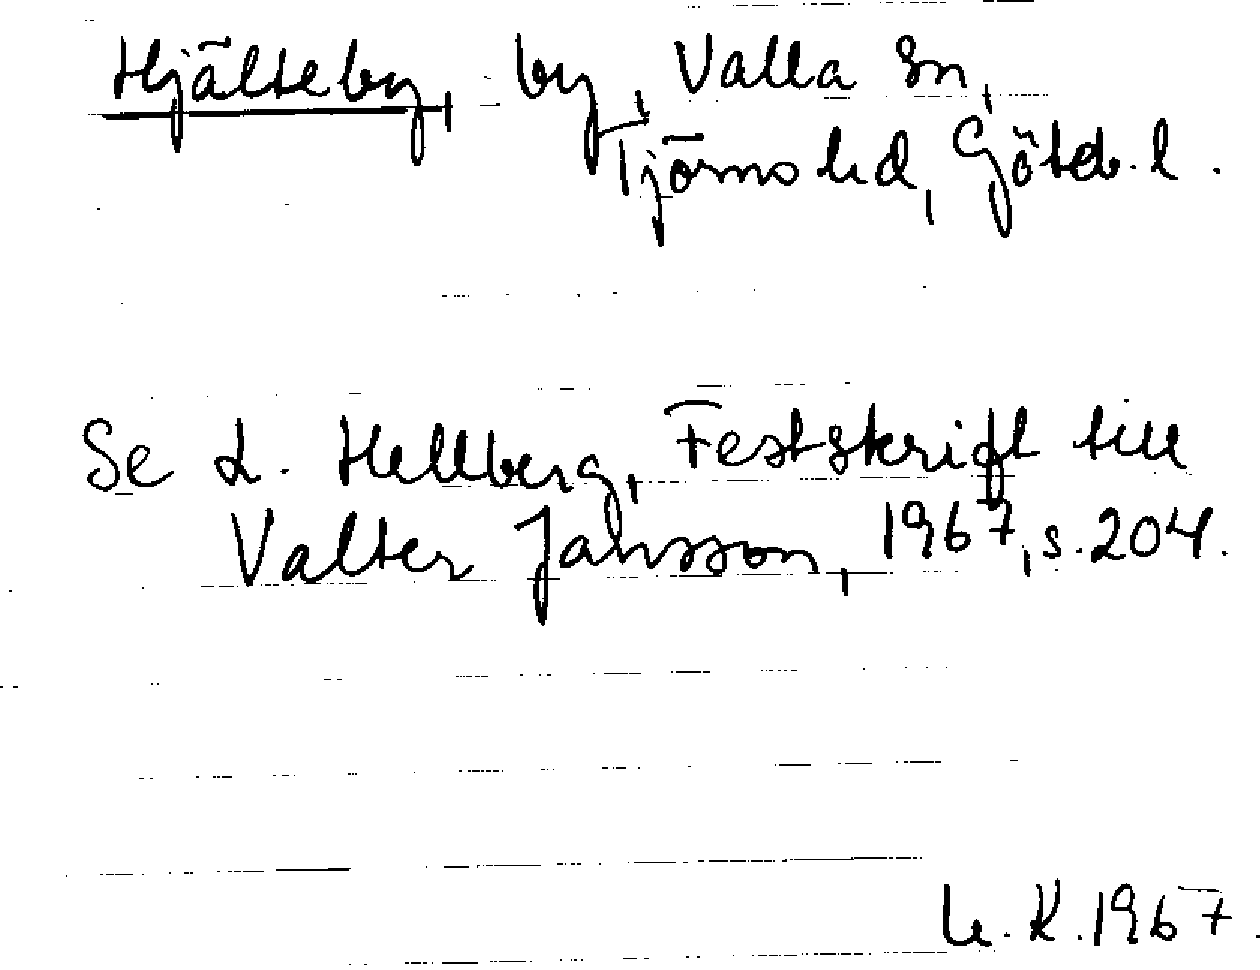 Hjälteby, by, Valla sn,
Tjörns hd, Göteb. l.
Se L. Hellberg, Festskrift till
Valter Jansson, 1967, s. 204.
H. K. 1967